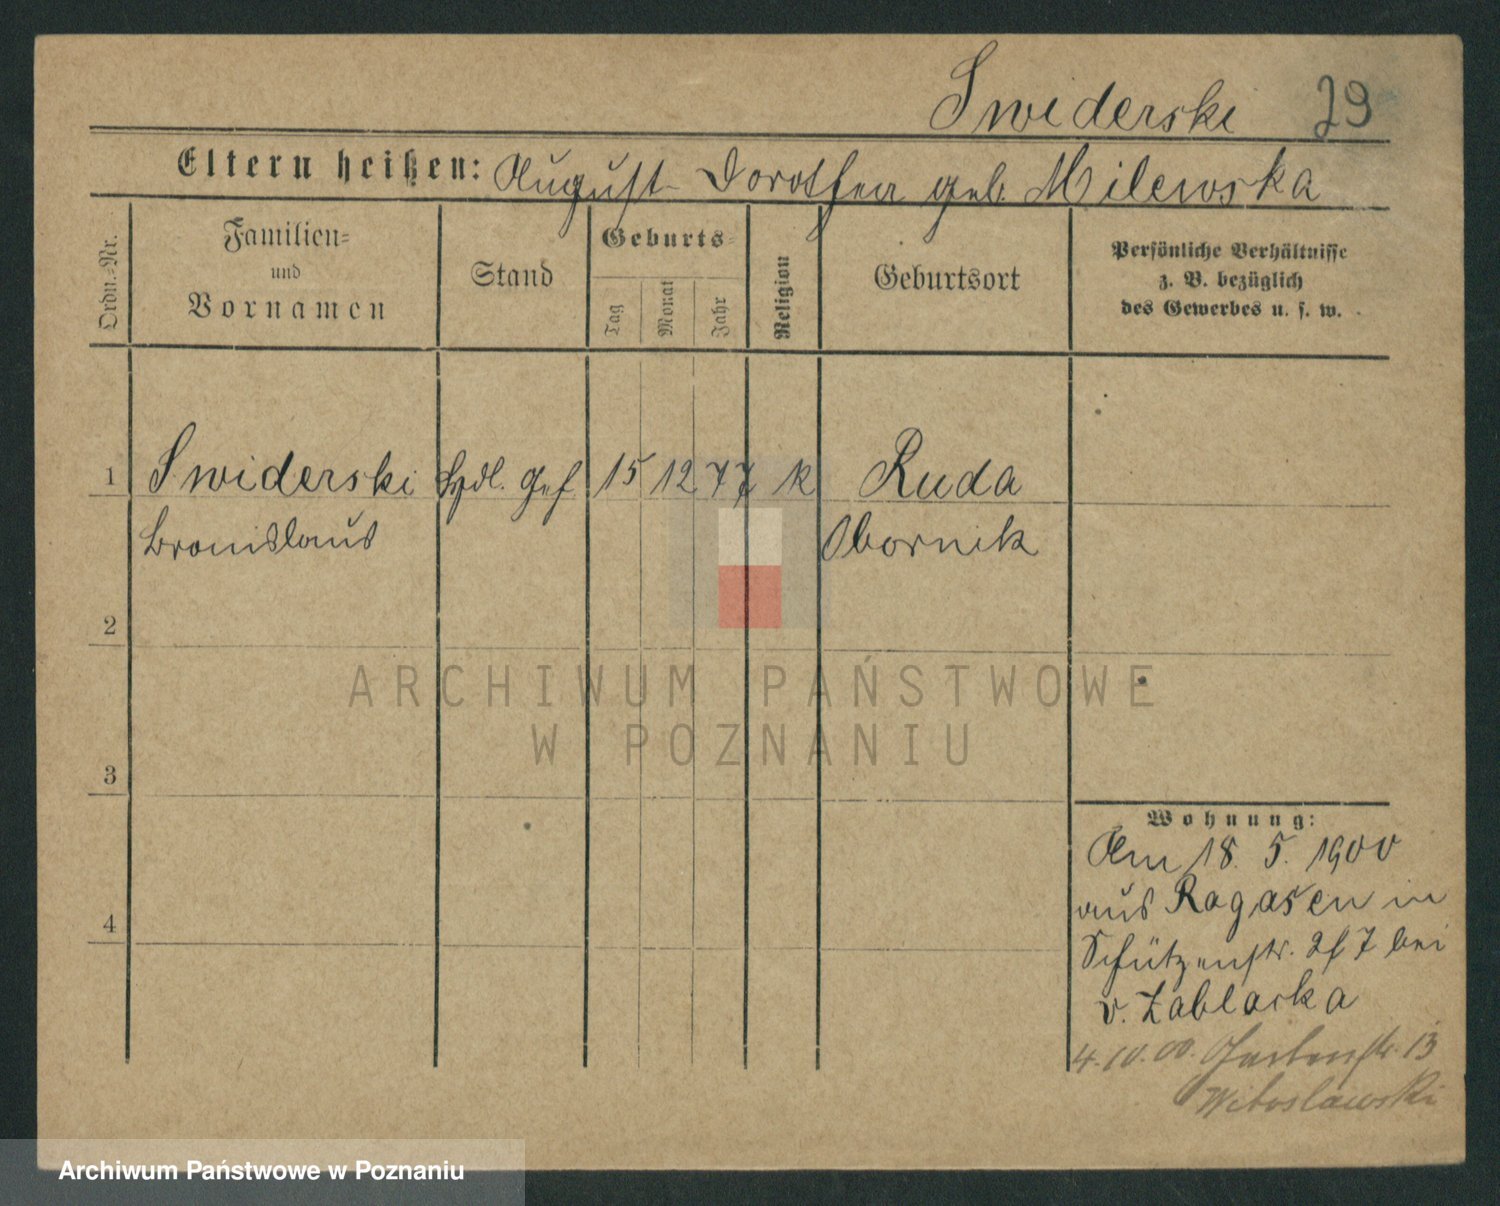 Swiderski 29
Eltern heißen: August Dorothea geb. Milewska
Ordn.=Nr.
Familien=
und
Vornamen
Stand
Geburts=
Tag
Monat
Jahr
Religion
Geburtsort
Persönliche Verhältnisse
z. B. bezüglich
des Gewerbes u. s. w.
1 Swiderski Hdl. Gef 15 12 77 k Ruda
Bronislaus Obornik
2
3
4
Wohnung:
Am 18. 5. 1900
aus Rogasen in
Schützenstr. 7 bei
v. Zablocka
4.10.00. Gartenstr. 13
Witoslawski
ARCHIWUM PAŃSTWOWE
W POZNANIU
Archiwum Państwowe w Poznaniu